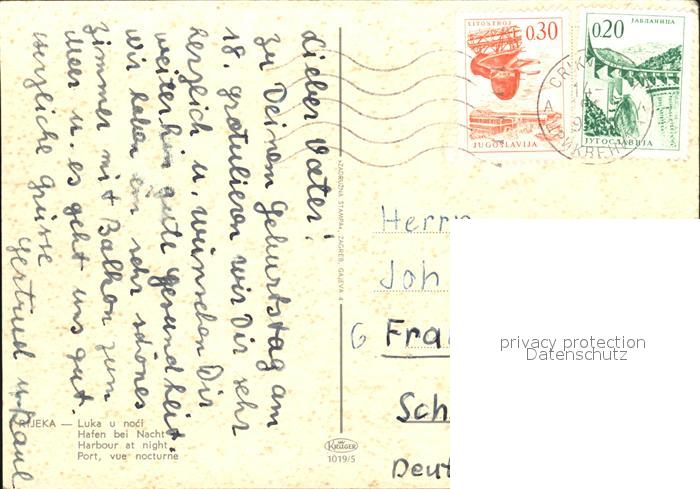 Lieber Vater!
Zu Deinem Geburtstag am
18. gratulieren wir Dir sehr
herzlich u. wünschen Dir
weiterhin gute Gesundheit.
Wir haben ein sehr schönes
Zimmer mit Balkon zum
Meer u. es geht uns gut.
Herzliche Grüsse
Gertrud u. Paul
RIJEKA — Luka u noći
Hafen bei Nacht
Harbour at night
Port, vue nocturne
»ZADRUŽNA ŠTAMPA«, ZAGREB, GAJEVA 4
KRÜGER
1019/5
LITOSTROJ
0.30
JUGOSLAVIJA
ЈАБЛАНИЦА
0.20
ЈУГОСЛАВИЈА
Herrn
Joh
6 Fra
Sch
Deut
privacy protection
Datenschutz